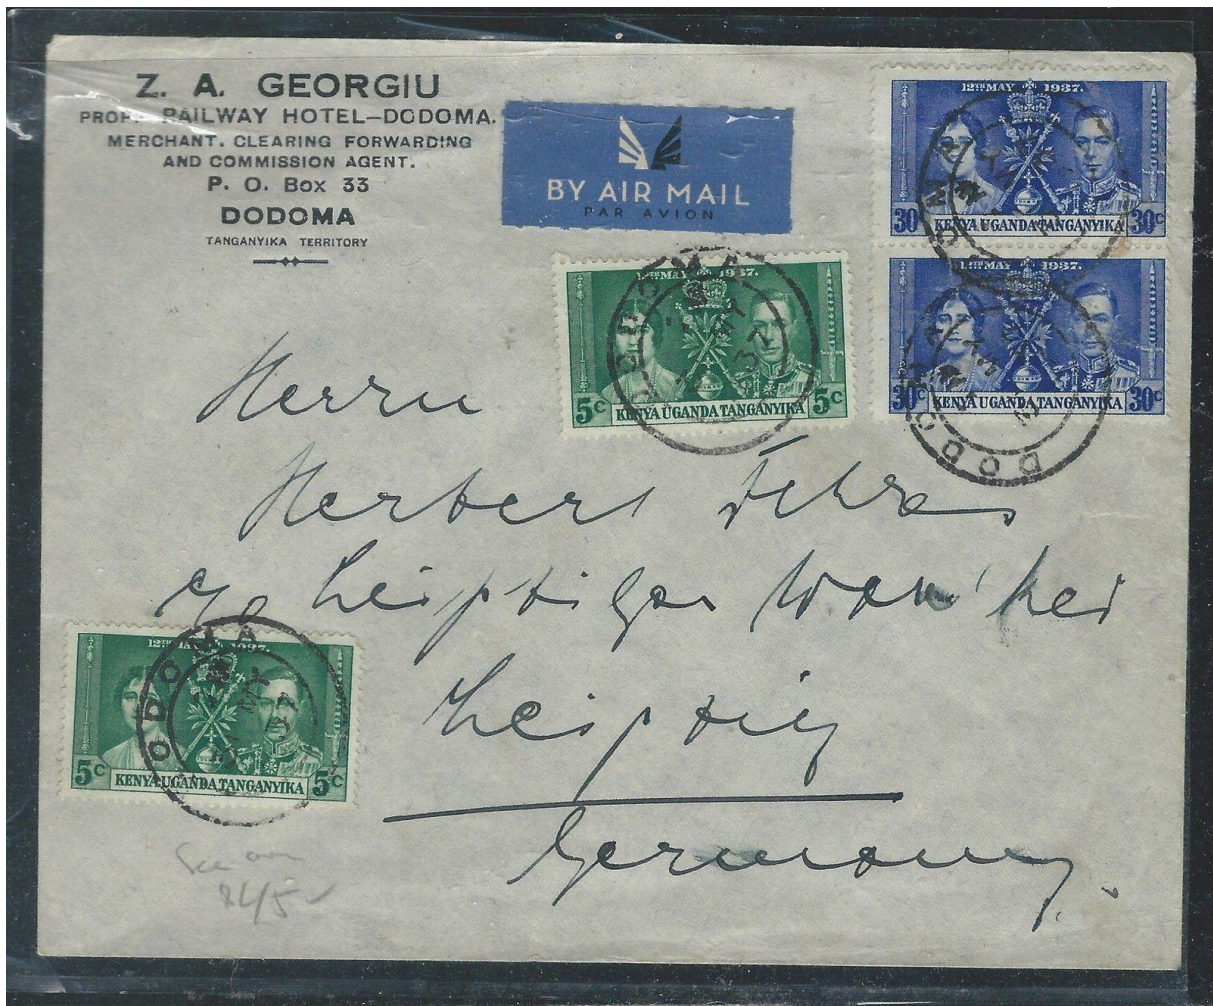 Z. A. GEORGIU
PROP. RAILWAY HOTEL—DODOMA.
MERCHANT. CLEARING FORWARDING
AND COMMISSION AGENT.
P. O. Box 33
DODOMA
TANGANYIKA TERRITORY
BY AIR MAIL
PAR AVION
12TH MAY 1937.
30C 30C
KENYA UGANDA TANGANYIKA
12TH MAY 1937.
30C 30C
KENYA UGANDA TANGANYIKA
DODOMA
DODOMA
12TH MAY 1937.
5C 5C
KENYA UGANDA TANGANYIKA
DODOMA
MY
37
Herrn
Herbert
c/o Leipziger
Leipzig
Germany.
12TH MAY 1937.
5C 5C
KENYA UGANDA TANGANYIKA
DODOMA
MY
37